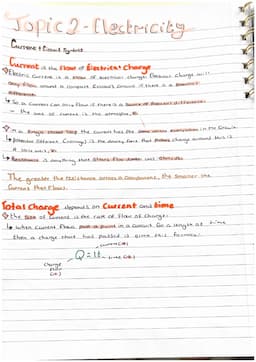 Topic 2 - Electricity
Current + Circuit Symbols
Current is the Flow of Electrical Charge
Electric Current is a Flow of electrical charge. Electric charge will
Only Flow around a complete circuit if there is a potential
difference.
↳ So a Current can only flow if there is a Source of Potential difference.
- the unit of current is the ampere, A.
In a Single closed loop the current has the same value everywhere in the circuit
↳ Potential difference (voltage) is the driving force that Pushes charge around. This is
↳ Resistance is anything that Slows Flow down
The greater the resistance across a component, the Smaller the
Current that Flows.
Total Charge depends on Current and time
the Size of Current is the rate of Flow of Charge.
↳ When current Flows past a point in a circuit for a length of time
then a charge that has passed is given this formula:
current (A)
Q = It
time (s)
Charge